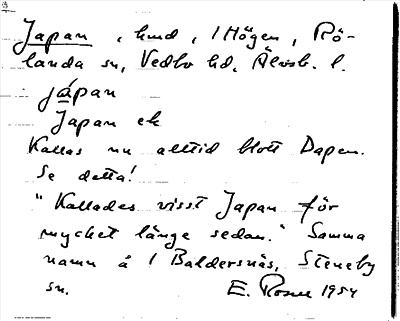 Japan, hmd, 1 Högen, Rö-
landa sn, Vedbo hd, Älvsb. l.
jápan
Japan ek
Kallas nu alltid blott Dapen.
Se detta!
"Kallades visst Japan för
mycket länge sedan." Samma
namn å 1 Baldersnäs, Steneby
sn. E. Rosell 1954